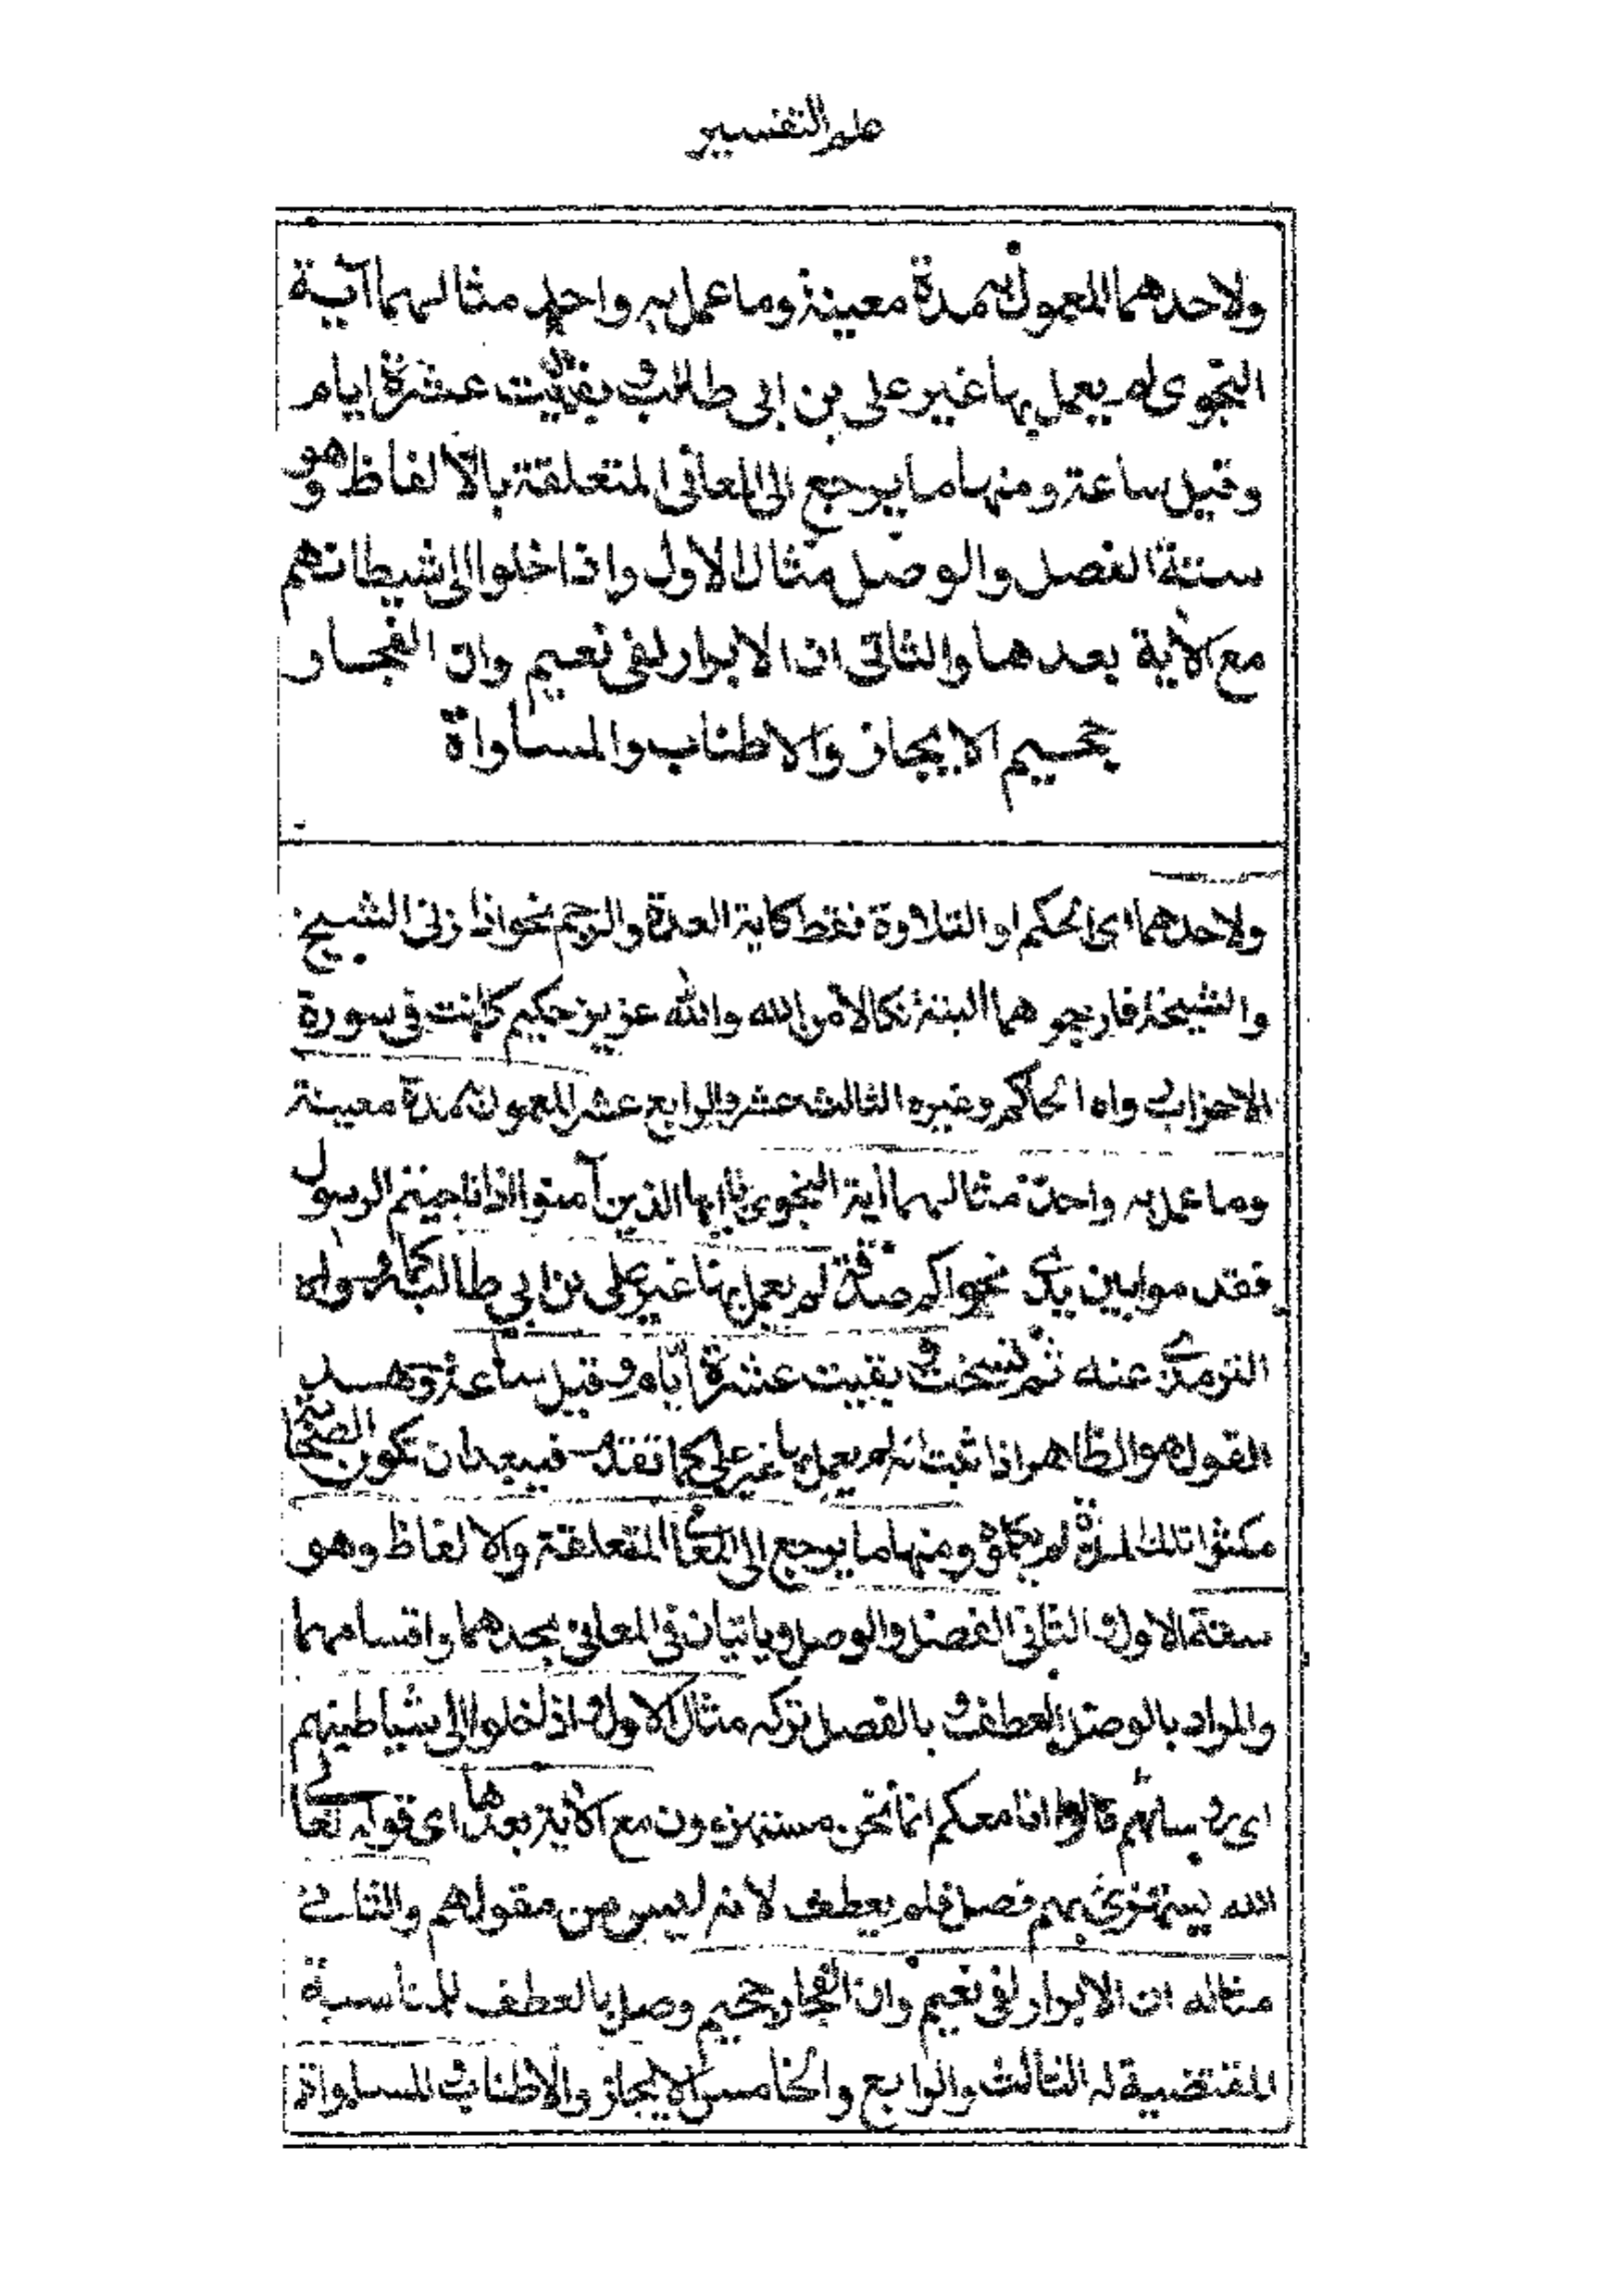 علم التفسير
ولاحدهما المعمول به مدة معينة وما عمل به واحد مثالهما آية
النجوى لم يعمل بها غير على بن ابى طالب وبقيت عشرة ايام
وقيل ساعة ومنها ما يرجع الى المعانى المتعلقة بالالفاظ وهو
ستة الفصل والوصل مثال الاول واذا خلوا الى شيطانهم
مع الآية بعدها والثانى ان الابرار لفى نعيم وان الفجار
جحيم الايجاز والاطناب والمساواة
ولاحدهما اى الحكم او التلاوة فقط كاية العدة والرجم نحو اذا زنى الشيخ
والشيخة فارجموهما البتة نكالا من الله والله عزيز حكيم كانت فى سورة
الاحزاب رواه الحاكم وغيره الثالث عشر والرابع عشر المعمول به مدة معينة
وما عمل به واحد مثالهما اية النجوى يا ايها الذين آمنوا اذا ناجيتم الرسول
فقدموا بين يدى نجواكم صدقة لم يعمل بها غير على بن ابي طالب كما رواه
الترمذى عنه ثم نسخت وبقيت عشرة ايام وقيل ساعة وهـ
القول هو الظاهر اذا ثبت انه لم يعمل بها غير على كما تقدم فيبعد ان تكون الصحابة
مكثوا تلك المدة لم يكلموه ومنها ما يرجع الى المعانى المتعلقة والالفاظ وهو
ستة الاول والثانى الفصل والوصل وياتيان فى المعانى بحدهما واقسامهما
والمراد بالوصل العطف وبالفصل تركه مثال الاول واذا خلوا الى شياطينهم
اى رؤسائهم قالوا انا معكم انما نحن مستهزءون مع الآية بعدها اى قوله تعالى
الله يستهزئ بهم فصل فلم يعطف لانه ليس من مقولهم والثانى
مثاله ان الابرار لفى نعيم وان الفجار جحيم وصل بالعطف للمناسبة
المقتضية له الثالث والرابع والخامس الايجاز والاطناب المساواة